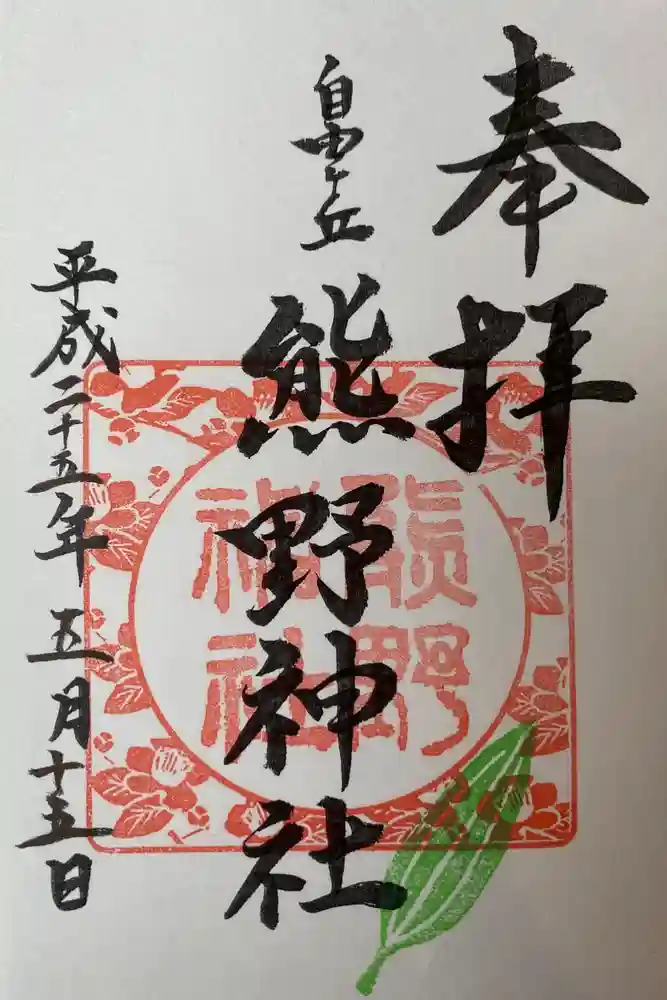 奉拝
自由ヶ丘
熊野神社
熊野神社
平成二十五年 五月十五日